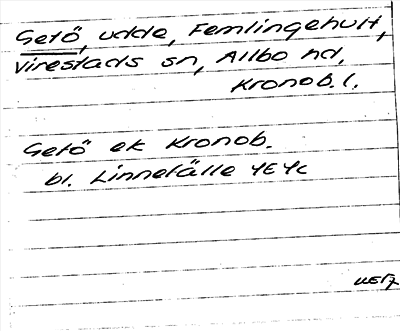 Getö, udde, Femlingehult,
Virestads sn, Allbo hd,
Kronob. l.
Getö ek Kronob.
bl. Linnefälle 4E4c